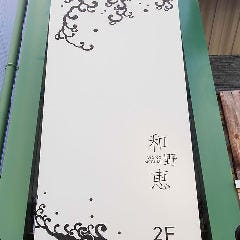 和
野
恵
2F